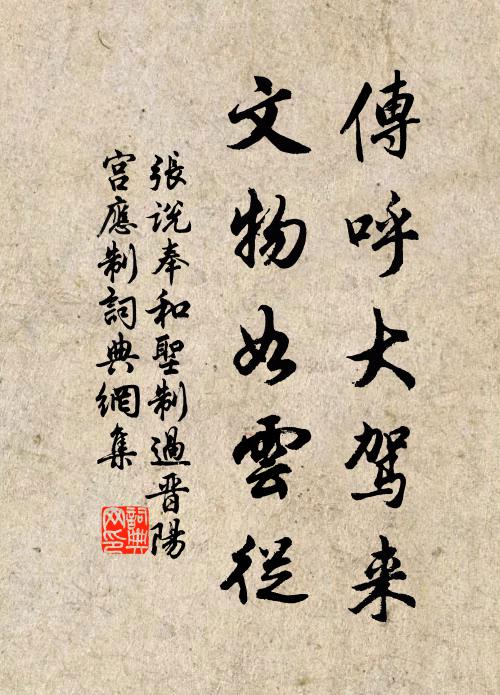 傳呼大駕来
文物如雲從
張説奉和聖制過晋陽
宮應制詞典網集
詞典
网印